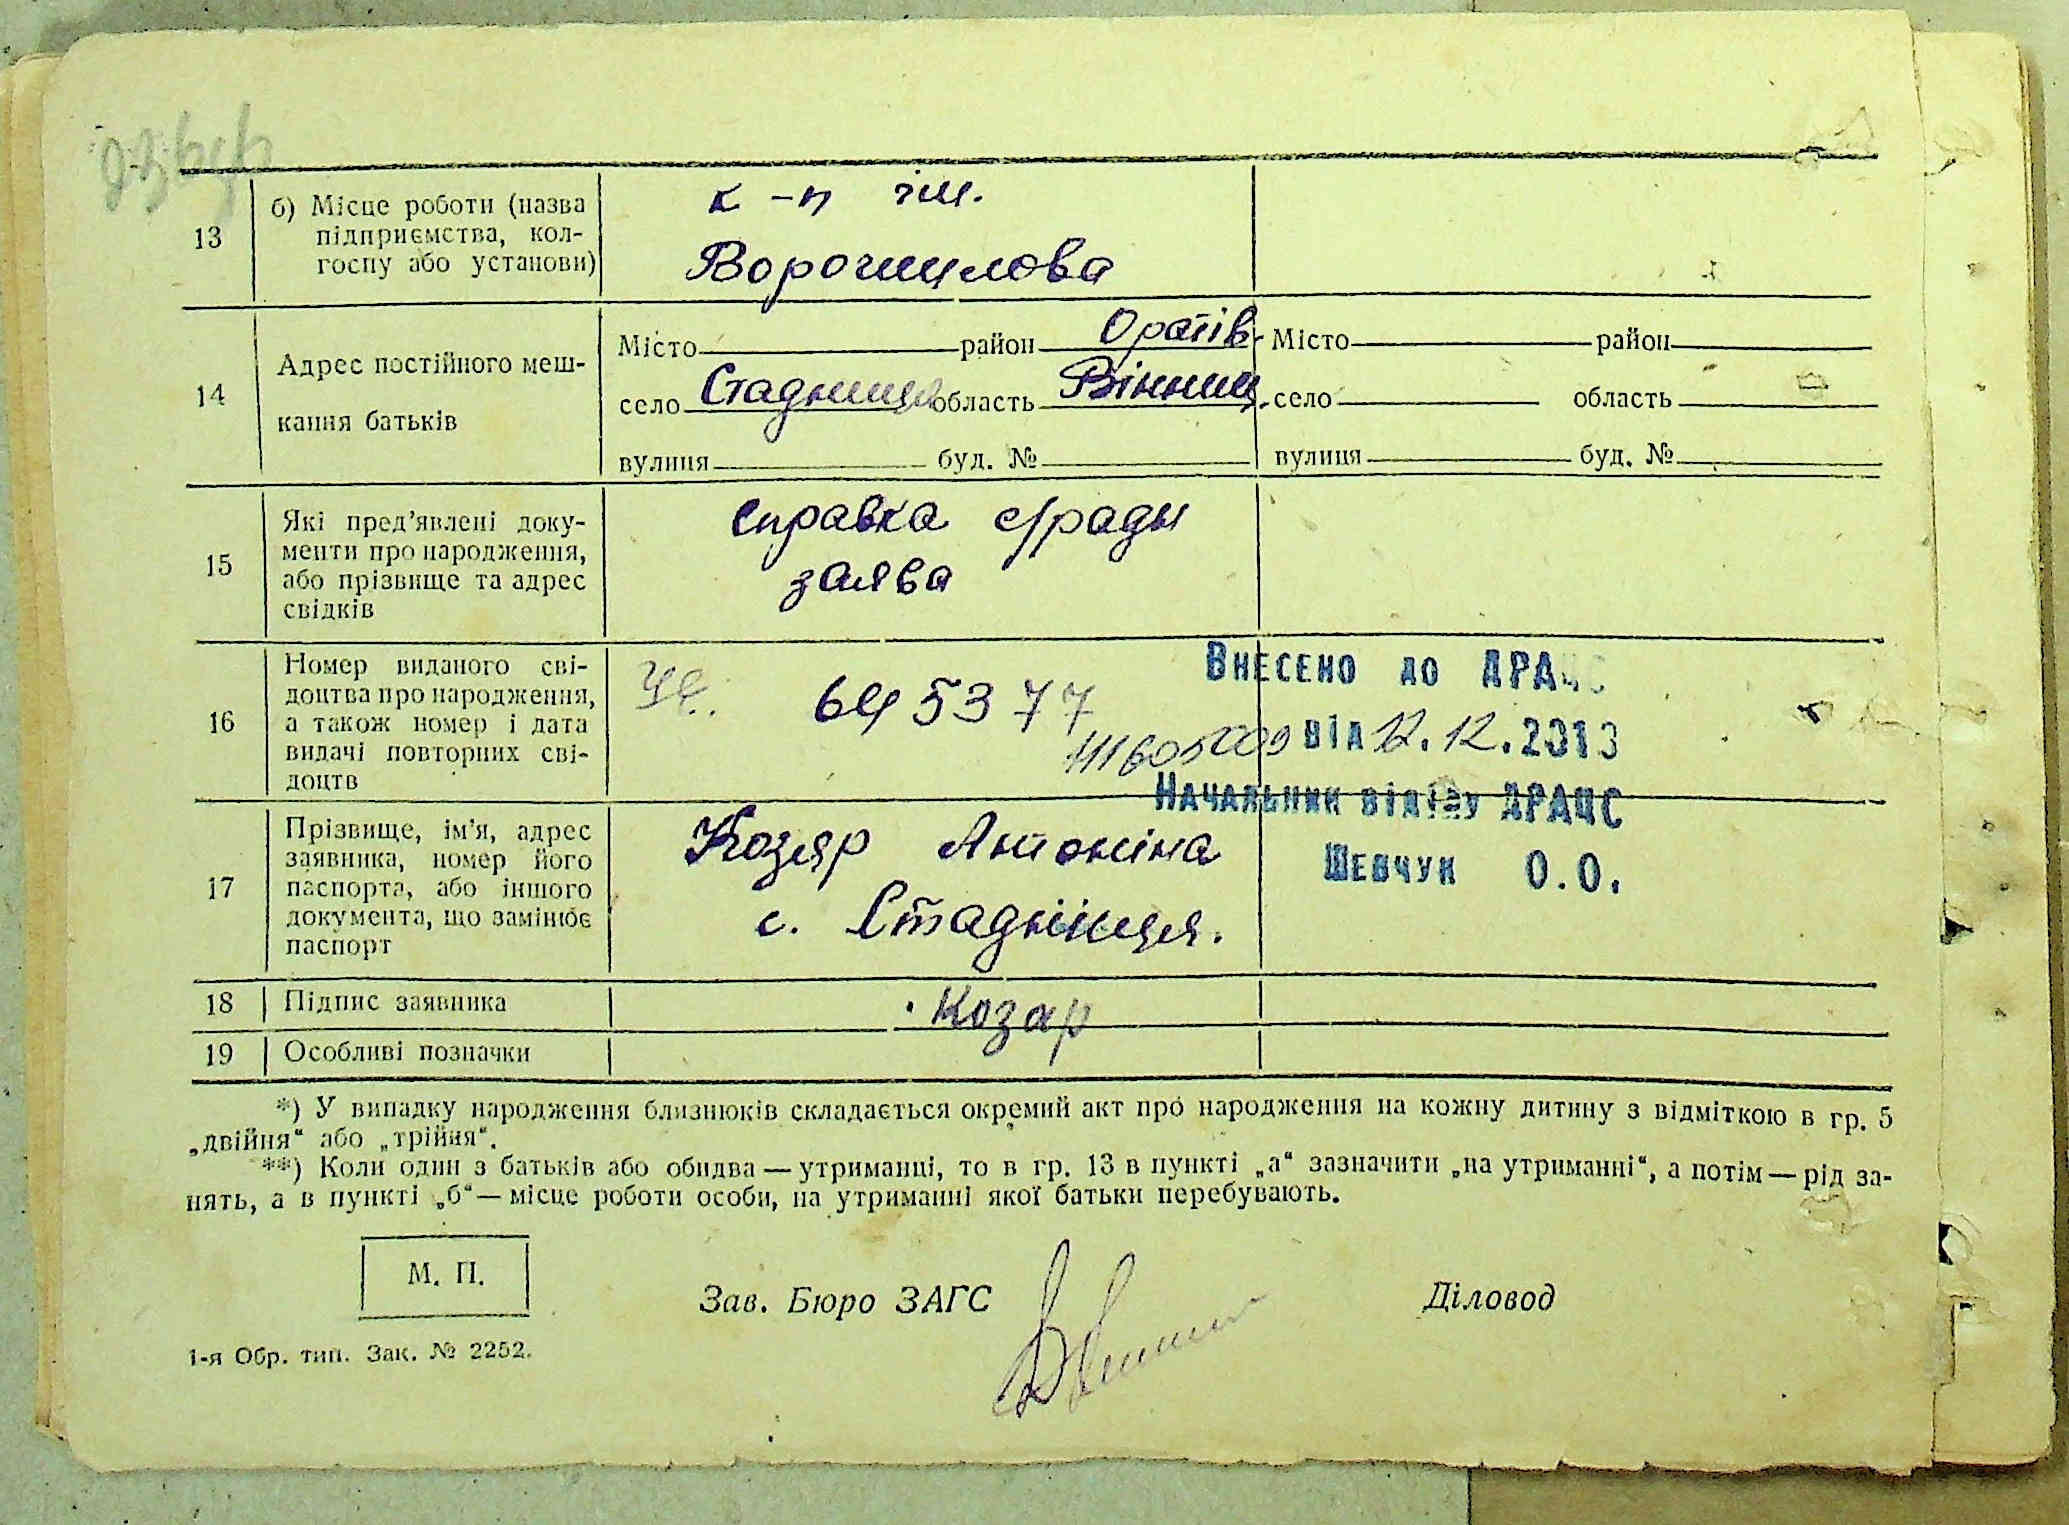 13
б) Місце роботи (назва
підприємства, кол-
госпу або установи)
к-п ім.
Ворошилова
14
Адрес постійного меш-
кання батьків
Місто район Оратів.
село Стадниця область Вінниц.
вулиця буд. №
Місто район
село область
вулиця буд. №
15
Які пред’явлені доку-
менти про народження,
або прізвище та адрес
свідків
справка с/ради
заява
16
Номер виданого сві-
доцтва про народження,
а також номер і дата
видачі повторних сві-
доцтв
645377
111605009
Внесено до ДРАЦС
від 12.12.2013
Начальник відділу ДРАЦС
Шевчук О.О.
17
Прізвище, ім’я, адрес
заявника, номер його
паспорта, або іншого
документа, що замінює
паспорт
Козяр Антоніна
с. Стадніиця.
18 Підпис заявника
Козар
19 Особливі позначки
*) У випадку народження близнюків складається окремий акт про народження на кожну дитину з відміткою в гр. 5
„двійня“ або „трійня“.
**) Коли один з батьків або обидва — утриманці, то в гр. 13 в пункті „а“ зазначити „на утриманні“, а потім — рід за-
нять, а в пункті „б“ — місце роботи особи, на утриманні якої батьки перебувають.
М. П.
Зав. Бюро ЗАГС
Діловод
1-я Обр. тип. Зак. № 2252.